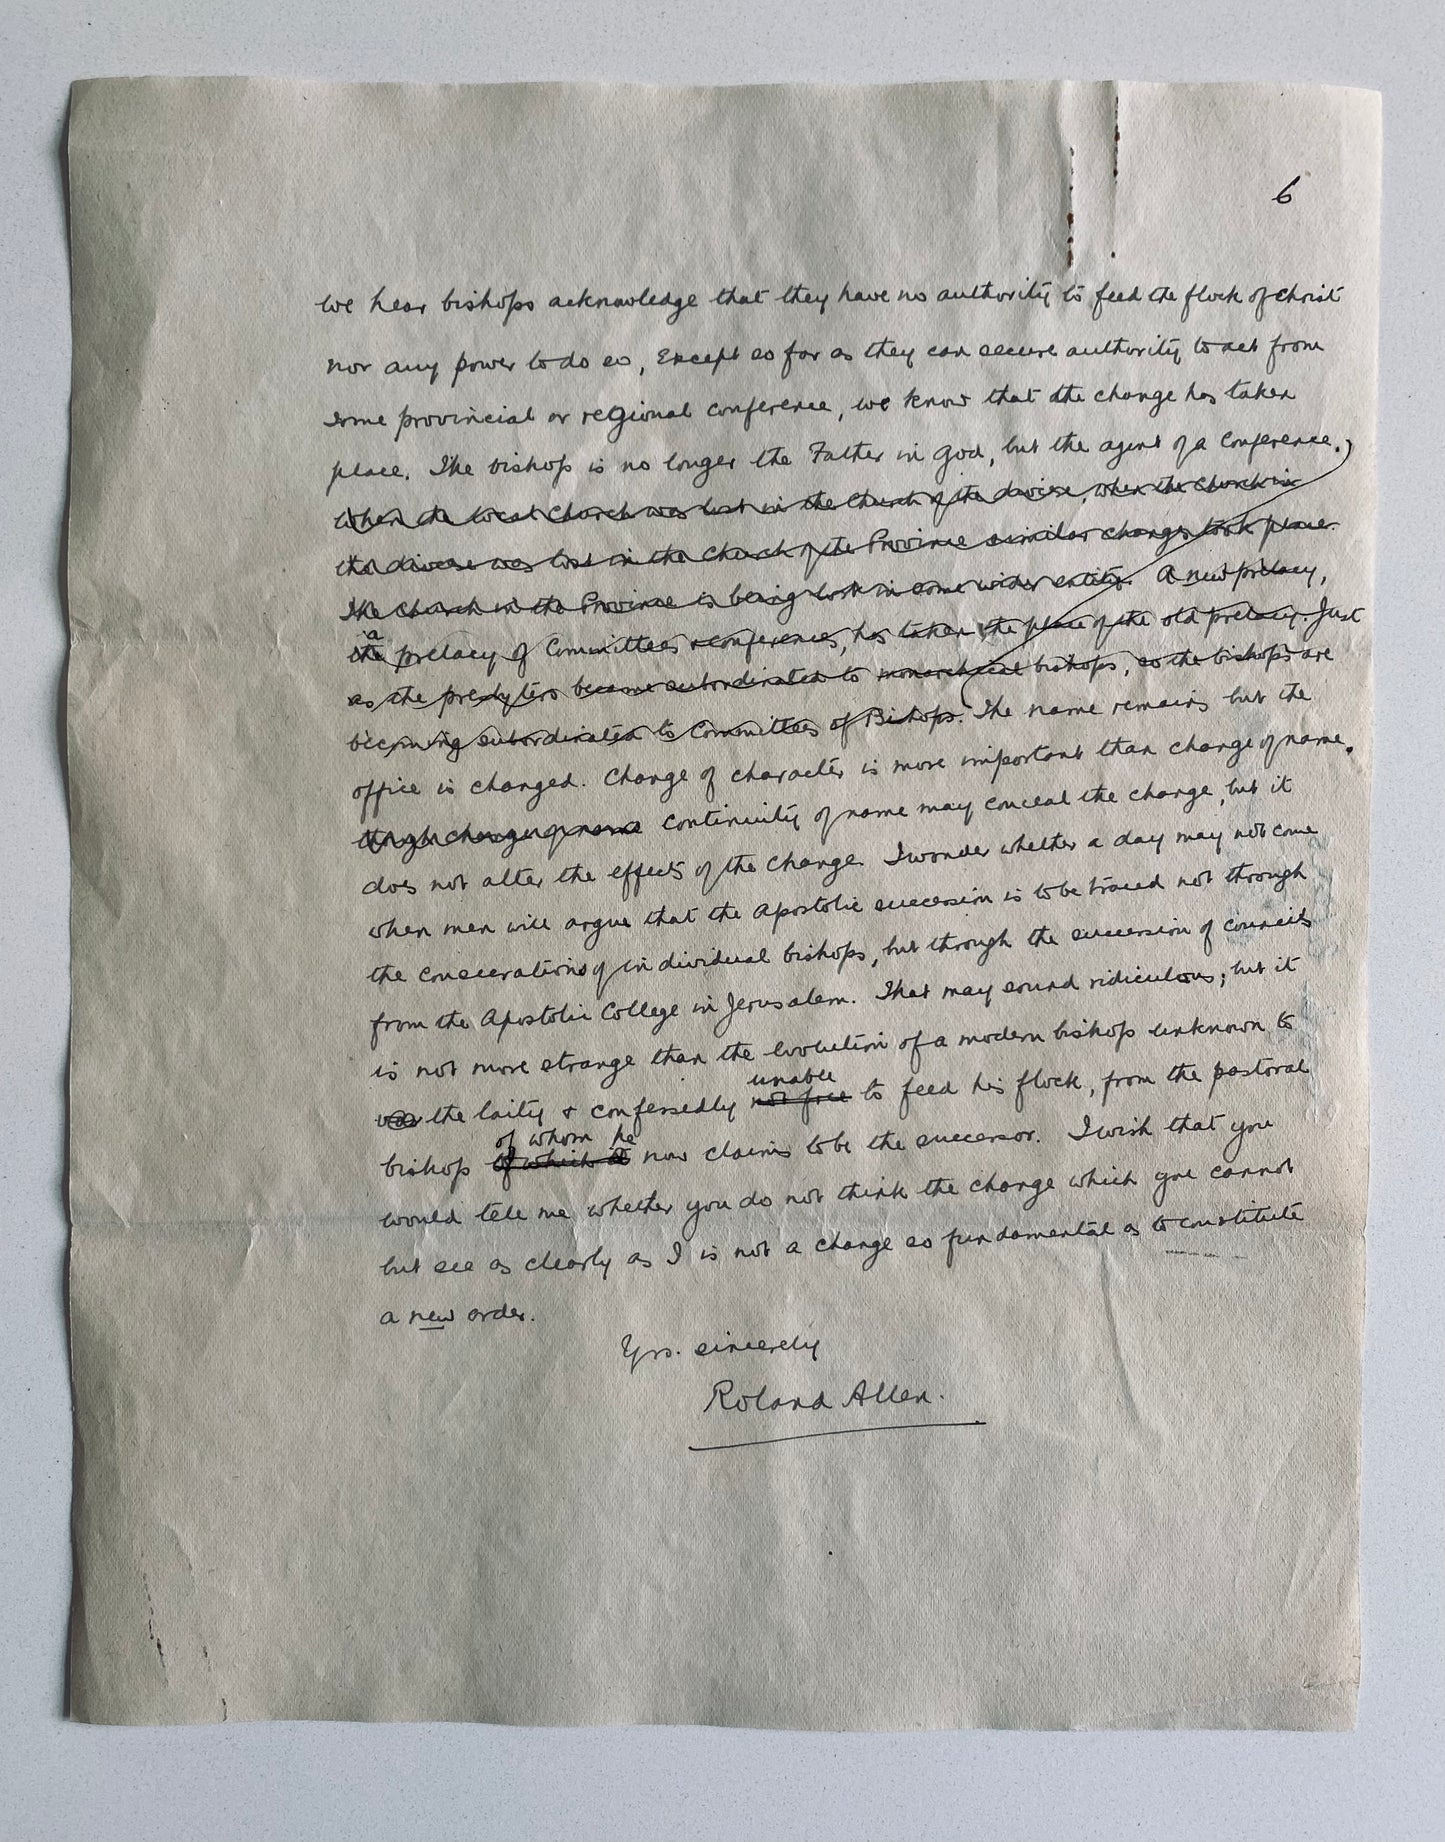 6
we hear bishops acknowledge that they have no authority to feed the flock of Christ
nor any power to do so, except so far as they can secure authority to act from
some provincial or regional conference, we know that the change has taken
place. The bishop is no longer the Father in God, but the agent of a Conference.
When the local Church was lost in the Church of the diocese, when the Church in
the diocese was lost in the Church of the Province similar changes took place.
The Church in the Province is being lost in some wider entity. A new prelacy,
a
the prelacy of Committees & conferences, has taken the place of the old prelacy. Just
as the presbyters became subordinated to monarchical bishops, so the bishops are
becoming subordinated to Committees of Bishops. The name remains but the
office is changed. Change of character is more important than change of name.
though change of name continuity of name may conceal the change, but it
does not alter the effects of the change. I wonder whether a day may not come
when men will argue that the Apostolic succession is to be traced not through
the consecrations of individual bishops, but through the succession of councils
from the Apostolic College in Jerusalem. That may sound ridiculous; but it
is not more strange than the evolution of a modern bishop unknown to
unable
the laity & confessedly not free to feed his flock, from the pastoral
of whom he
bishop of which it now claims to be the successor. I wish that you
would tell me whether you do not think the change which you cannot
but see as clearly as I is not a change so fundamental as to constitute
a new order.
Yrs. sincerely
Roland Allen.